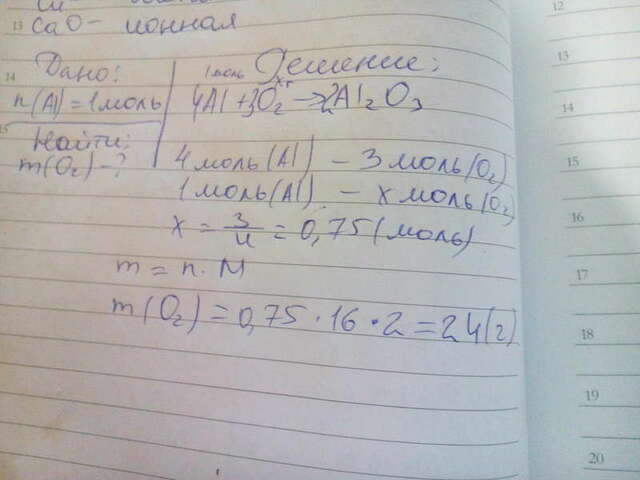 13 CaO - ионная
12
13
14
15
16
17
18
19
20
14 Дано:
n(Al) = 1 моль
15 Найти:
m(O₂) - ?
Решение:
1 моль x г
4Al + 3O₂ → 2Al₂O₃
4 моль (Al) - 3 моль (O₂)
1 моль (Al) - x моль (O₂)
x = 3/4 = 0,75 (моль)
m = n · M
m(O₂) = 0,75 · 16 · 2 = 24 (г)